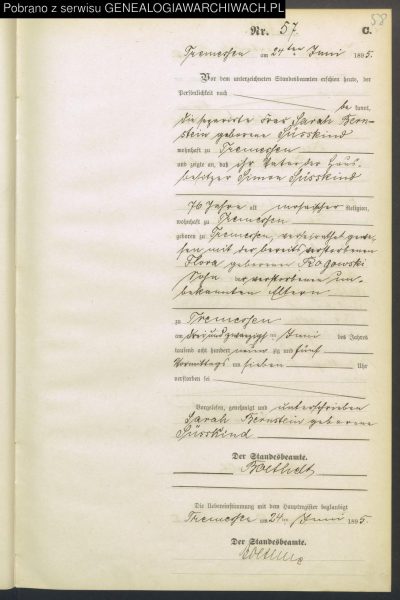 Pobrano z serwisu GENEALOGIAWARCHIWACH.PL
58
Nr. 57. C.
Tremessen am 24ten Juni 1895.
Vor dem unterzeichneten Standesbeamten erschien heute, der
Persönlichkeit nach
be kannt,
die separirte Frau Sarah Bern-
stein geborene Süsskind
wohnhaft zu Tremessen
und zeigte an, daß ihr Vater der Haus-
besitzer Simon Süsskind
76 Jahre alt, mosaischer Religion,
wohnhaft zu Tremessen
geboren zu Tremessen, verheirathet gewe-
sen mit der bereits verstorbenen
Flora geborenen Rogowski
Sohn verstorbener un-
bekannten Eltern
zu Tremessen
am dreiundzwanzigsten Juni des Jahres
tausend acht hundert neun zig und fünf
Vormittags um sieben Uhr
verstorben sei
Vorgelesen, genehmigt und unterschrieben
Sarah Bernstein geborene
Süsskind
Der Standesbeamte.
Die Uebereinstimmung mit dem Hauptregister beglaubigt
Tremessen am 24ten Juni 1895.
Der Standesbeamte.